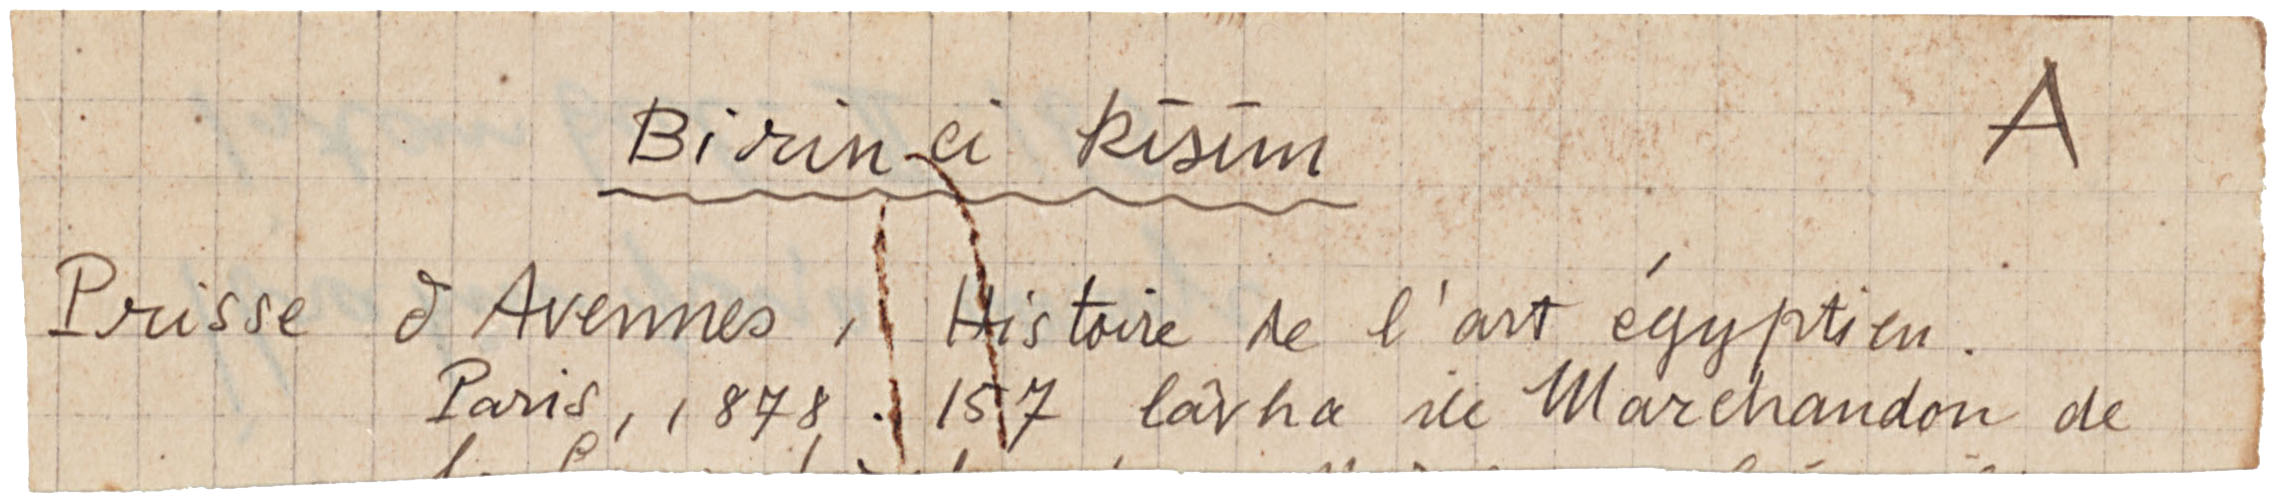 Birinci kısım
A
Prisse d'Avennes, Histoire de l'art égyptien.
Paris, 1878. 157 lâvha ile Marchandon de